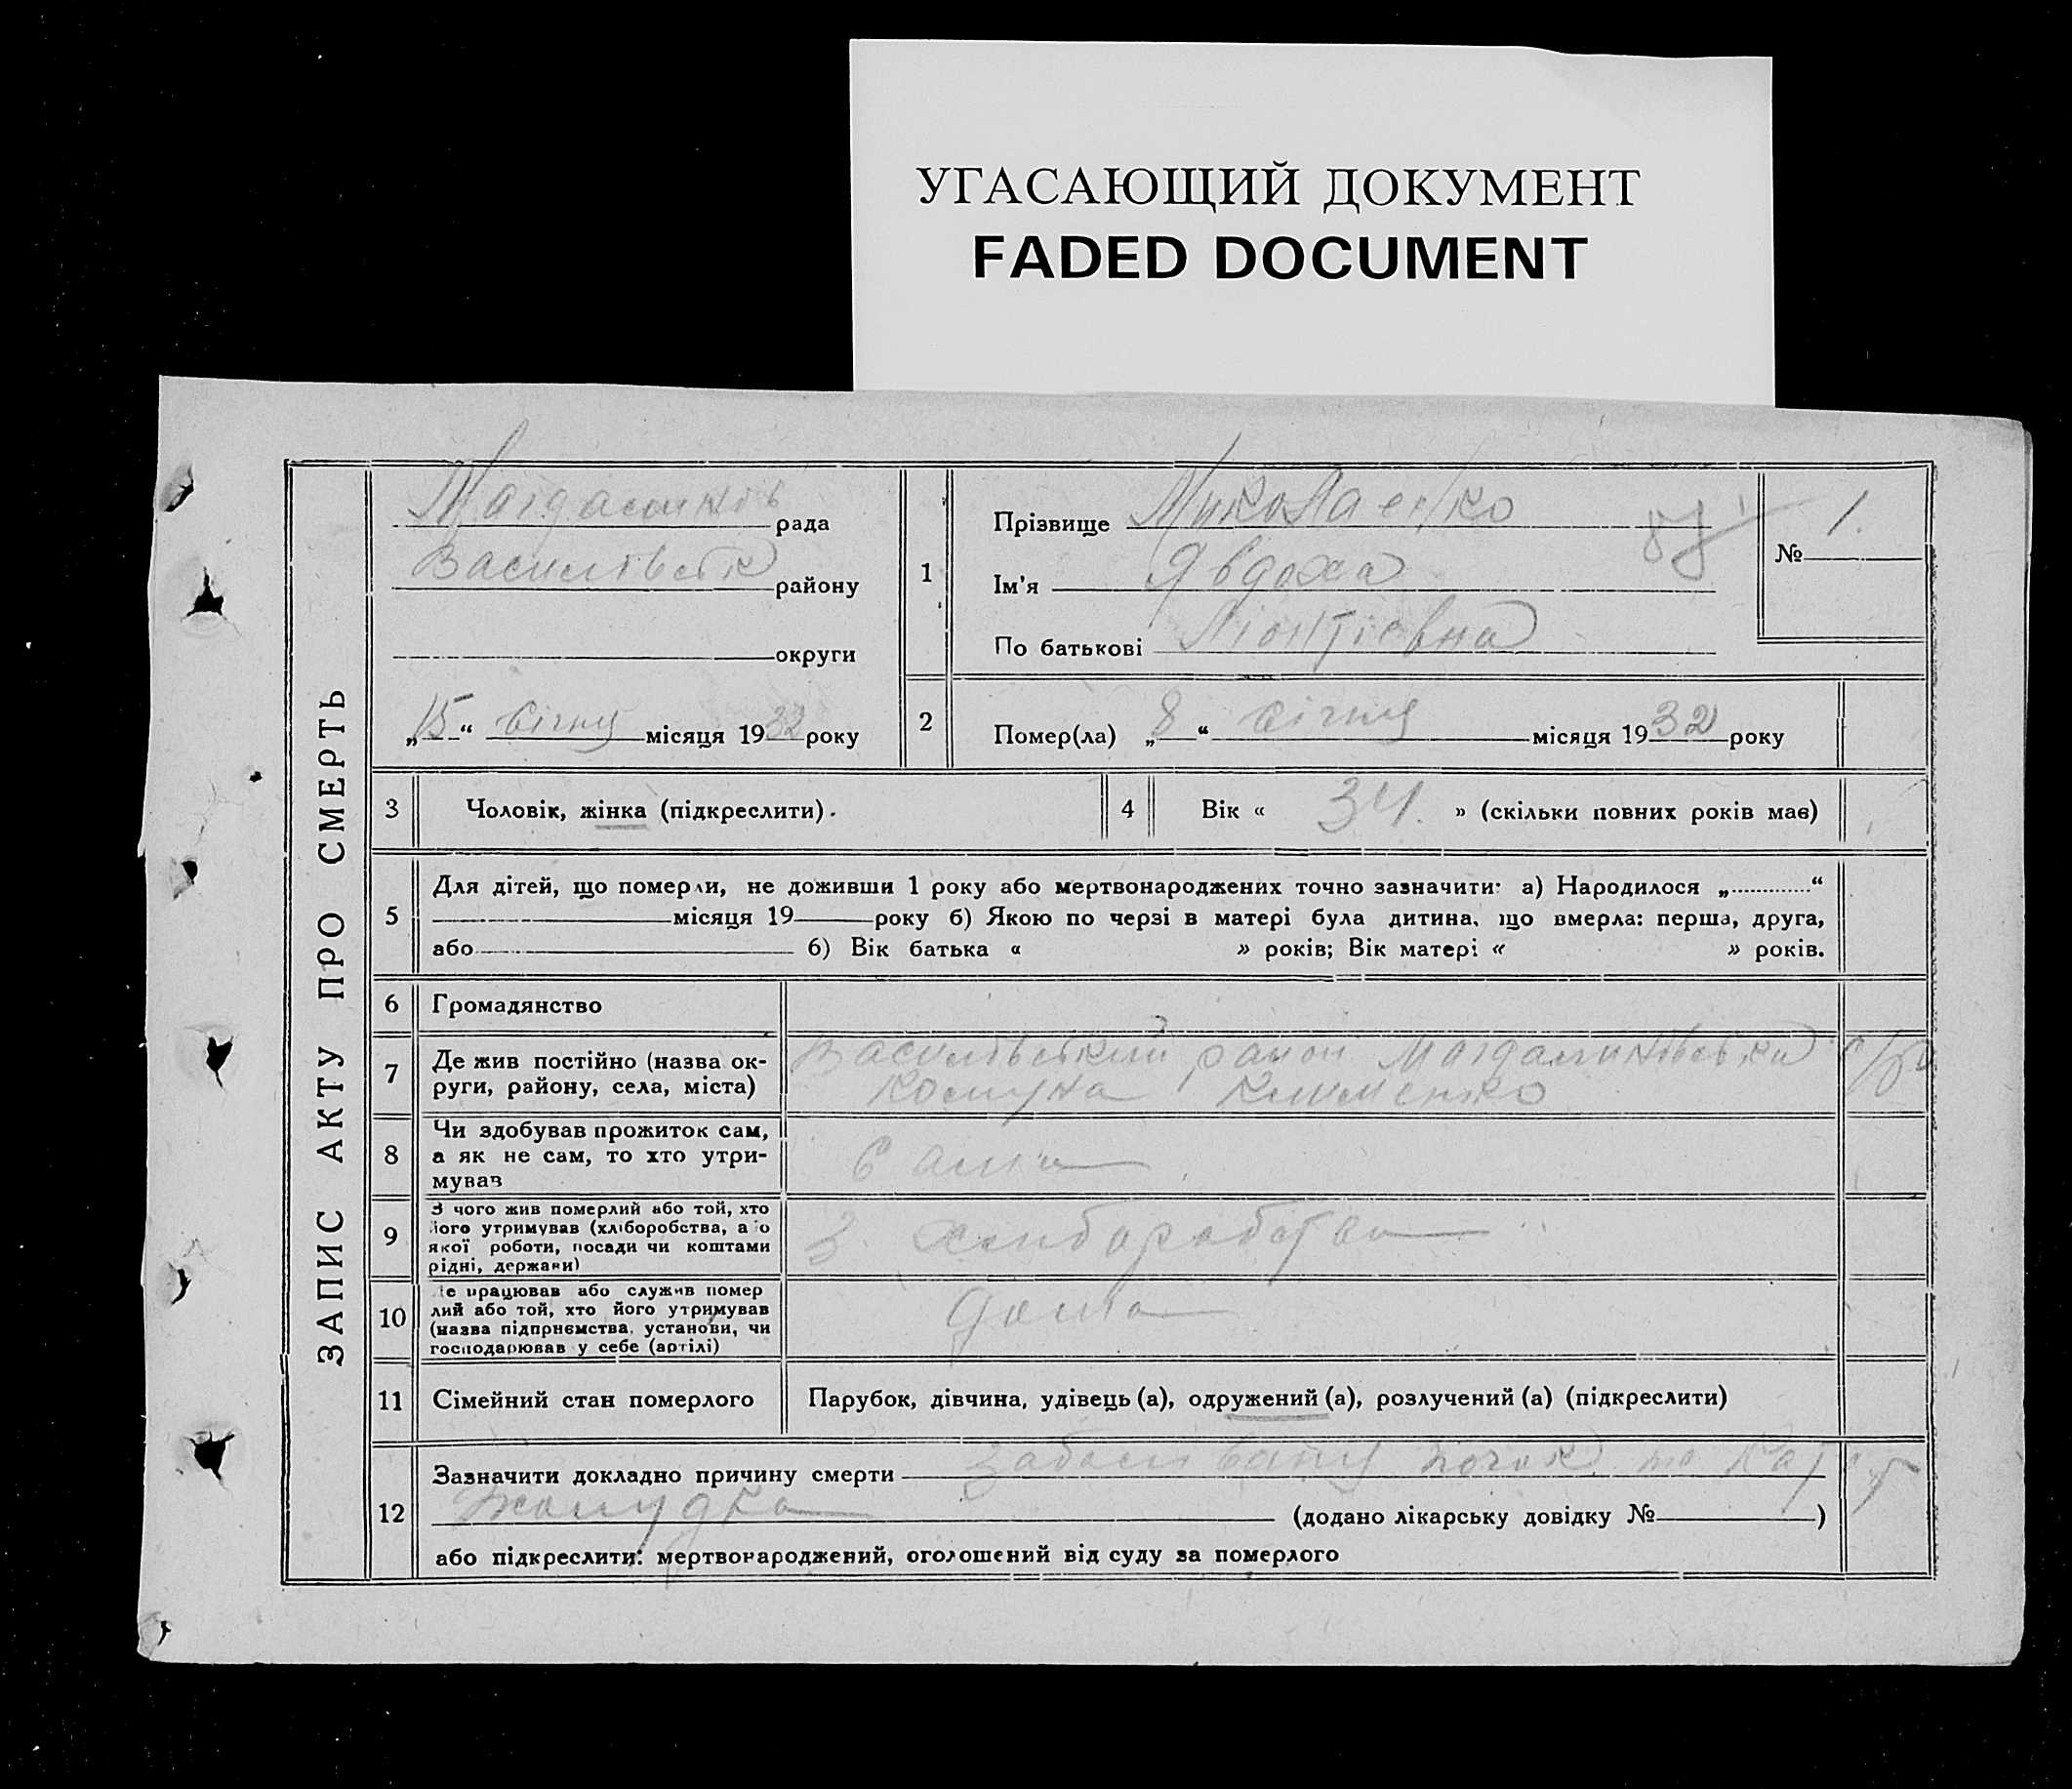 УГАСАЮЩИЙ ДОКУМЕНТ
FADED DOCUMENT
ЗАПИС АКТУ ПРО СМЕРТЬ
рада
Васильвськ району
округи
„15“ січня місяця 1932 року
1
Прізвище Миколаенко
Ім'я Явдоха
По батькові Ліонтіевна
№ 1.
2
Помер(ла) „8“ січня місяця 1932 року
3 Чоловік, жінка (підкреслити).
4 Вік « 34. » (скільки повних років має)
5
Для дітей, що померли, не доживши 1 року або мертвонароджених точно зазначити: а) Народилося „ “
місяця 19 року б) Якою по черзі в матері була дитина, що вмерла: перша, друга,
або б) Вік батька « » років; Вік матері « » років.
6 Громадянство
7 Де жив постійно (назва ок-
руги, району, села, міста)
Васильвський район с/р
Комуна Клименко
8 Чи здобував прожиток сам,
а як не сам, то хто утри-
мував
Сама
9 З чого жив померлий або той, хто
його утримував (хліборобства, або
якої роботи, посади чи коштами
рідні, держави)
З хлиборобства
10 Де працював або служив помер
лий або той, хто його утримував
(назва підприємства, установи, чи
господарював у себе (артілі)
дома
11 Сімейний стан померлого
Парубок, дівчина, удівець (а), одружений (а), розлучений (а) (підкреслити)
12
Зазначити докладно причину смерти почок та
жолудка (додано лікарську довідку № )
або підкреслити: мертвонароджений, оголошений від суду за померлого